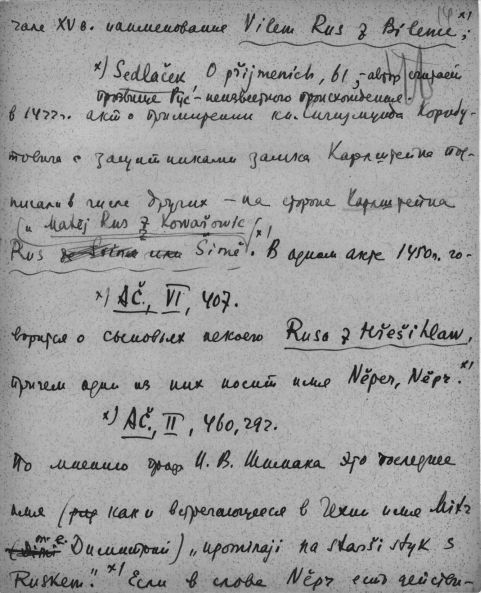 14
чале XV в. наименование Vilem Rus z Bileme, x)
x) Sedláček O příjmeních, 61, - автор считает
прозвище Рус' - неизвестного происхождения.
в 1422г. акт о примирении кн. Сигизмунда Корибу-
товича с защитниками замка Карлштейна под-
писали в числе других - на стороне Карлштейна
(и Matěj Rus z Kovašovic)
Rus z Šimě. x) В одном акте 1450г. го-
x) AČ., VI, 407.
ворится о сыновьях некоего Rusa z Hřešihlaw,
причем один из них носит имя Něper, Něpr. x)
x) AČ., II, 460, 292.
По мнению проф. И. В. Шимака это последнее
имя (как и встречающееся в Чехии имя Mitr
(т.е. Димитрий) „upominaji na starši styk s
Ruskem". x) Если в слове Něpr есть действи-